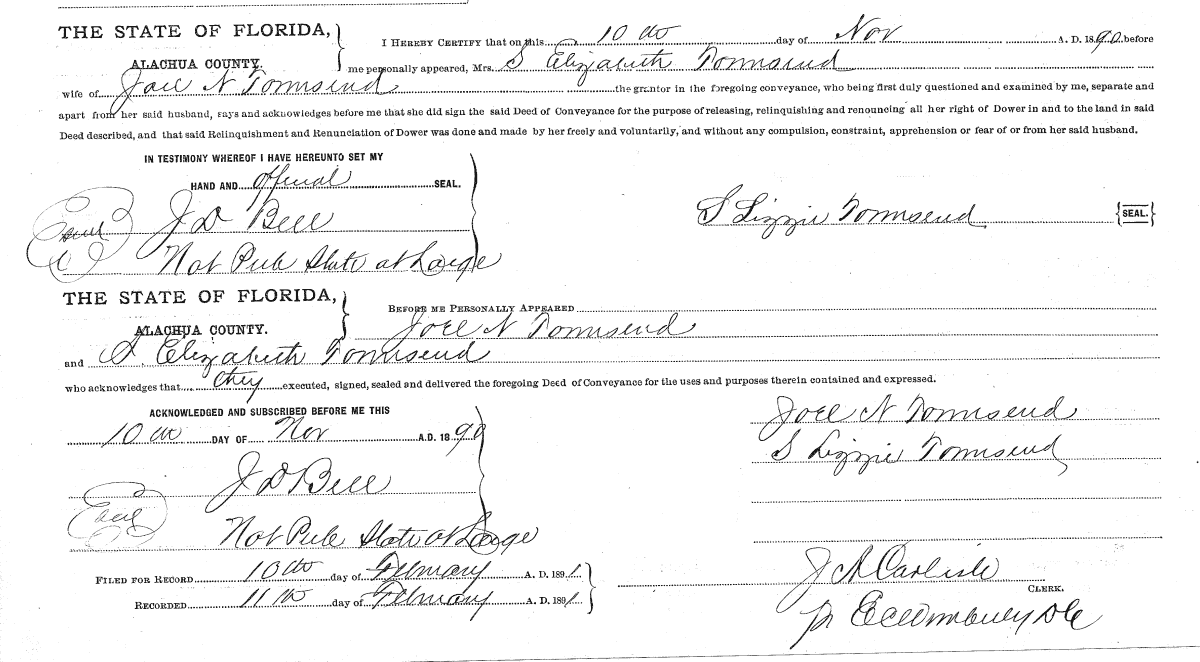 THE STATE OF FLORIDA,
ALACHUA COUNTY.
I HEREBY CERTIFY that on this 10 th day of Nov A. D. 1890 before
me personally appeared, Mrs. S Elizabeth Townsend
wife of Joel N Townsend the grantor in the foregoing conveyance, who being first duly questioned and examined by me, separate and
apart from her said husband, says and acknowledges before me that she did sign the said Deed of Conveyance for the purpose of releasing, relinquishing and renouncing all her right of Dower in and to the land in said
Deed described, and that said Relinquishment and Renunciation of Dower was done and made by her freely and voluntarily, and without any compulsion, constraint, apprehension or fear of or from her said husband.
IN TESTIMONY WHEREOF I HAVE HEREUNTO SET MY
HAND AND official SEAL.
S Lizzie Townsend {SEAL.}
Seal J D Bell
Not Pub State at Large
THE STATE OF FLORIDA,
ALACHUA COUNTY.
BEFORE ME PERSONALLY APPEARED
Joel N Townsend
and S. Elizabeth Townsend
who acknowledges that they executed, signed, sealed and delivered the foregoing Deed of Conveyance for the uses and purposes therein contained and expressed.
ACKNOWLEDGED AND SUBSCRIBED BEFORE ME THIS
10 th DAY OF Nov A.D. 1890
Joel N Townsend
S Lizzie Townsend
J D Bell
Seal
Not Pub State at Large
FILED FOR RECORD 10 th day of February A. D. 1891.
RECORDED 11 th day of February A. D. 1891.
J A Carlisle
CLERK.
DC